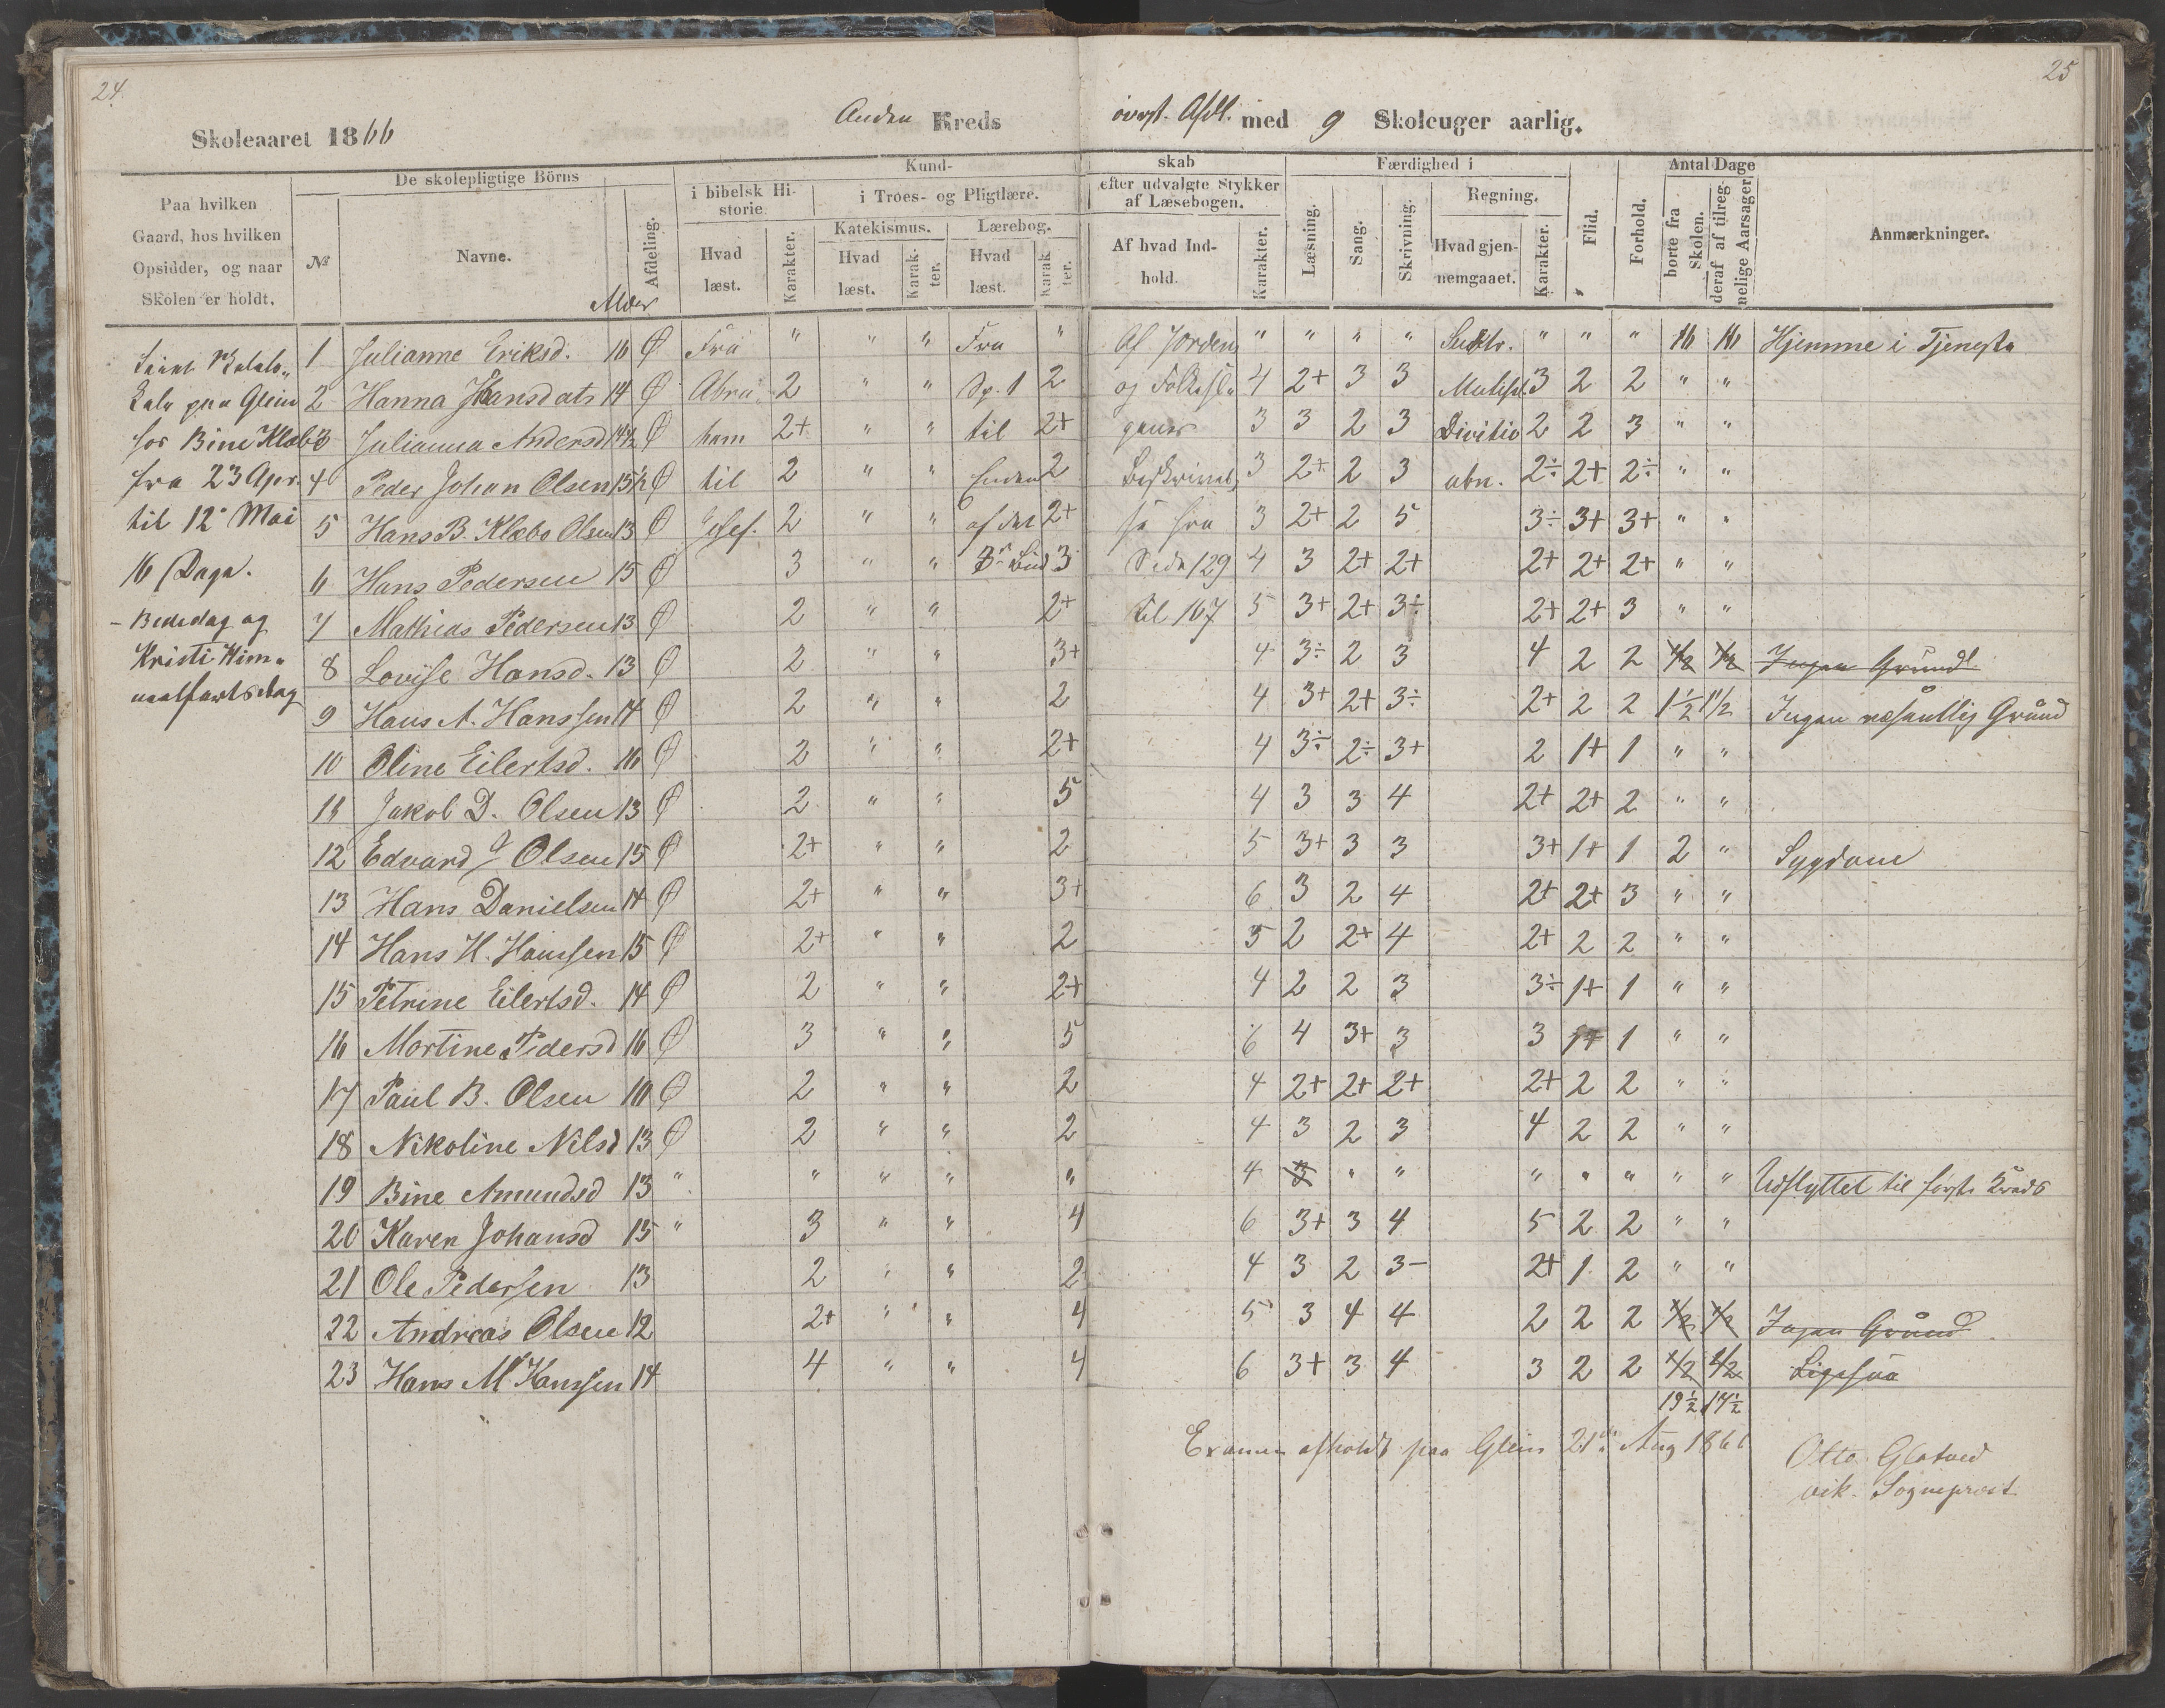 24.
25
Skoleaaret 1866
Anden Kreds
øverst. Afdl. med 9 Skoleuger aarlig.
Paa hvilken Gaard, hos hvilken Opsidder, og naar Skolen er holdt.
De skolepligtige Börns
No
Navne.
Alder
Afdeling.
Kundskab
i bibelsk Historie
Hvad læst.
Karakter.
i Troes- og Pligtlære.
Katekismus.
Hvad læst.
Karakter.
Lærebog.
Hvad læst.
Karakter.
efter udvalgte Stykker af Læsebogen.
Af hvad Indhold.
Karakter.
Færdighed i
Læsning.
Sang.
Skrivning.
Regning.
Hvad gjennemgaaet.
Karakter.
Flid.
Forhold.
Antal Dage
borte fra Skolen.
deraf af tilregnelige Aarsager
Anmærkninger.
paa Glein
hos Bine Klæbo
fra 23 Apr.
til 12te Mai
16 Dage.
- Bededag og
Kristi Him-
melfartsdag
1 Julianne Eriksd. 16 Ø Fra " " " Fra " Af Jorden " " " " " " " 16 16 Hjemme i Tjeneste
2 Hanna Hansdatr 14 Ø Abra- 2 " " Sp. 1 2 og Folkesl- 4 2+ 3 3 Multipl. 3 2 2 " "
3 Julianna Andersd 14½ Ø ham 2+ " " til 2+ 3 3 2 3 Divitio 2 2 3 " "
4 Peder Johan Olsen 15½ Ø til 2 " " Enden 2 Beskrivel- 3 2+ 2 3 abn. 2÷ 2+ 2÷ " "
5 Hans B. Klæbo Olsen 13 Ø Josef. 2 " " af det 2+ se fra 3 2+ 2 5 3÷ 3+ 3+ " "
6 Hans Pedersen 15 Ø 3 " " 3 Side 129 4 3 2+ 2+ 2+ 2+ 2+ " "
7 Mathias Pedersen 13 Ø 2 " " 2+ til 167 5 3+ 2+ 3÷ 2+ 2+ 3 " "
8 Lovise Hansd. 13 Ø 2 " " 3+ 4 3÷ 2 3 4 2 2 ½ ½ Ingen Grund
9 Hans A. Hanssen 14 Ø 2 " " 2 4 3+ 2+ 3÷ 2+ 2 2 1½ 1½ Ingen væsentlig Grund
10 Oline Eilertsd. 16 Ø 2 " " 2+ 4 3÷ 2÷ 3+ 2 1+ 1 " "
11 Jakob D. Olsen 13 Ø 2 " " 5 4 3 3 4 2+ 2+ 2 " "
12 Edvard J Olsen 15 Ø 2+ " " 2 5 3+ 3 3 3+ 1+ 1 2 " Sygdom
13 Hans Danielsen 14 Ø 2+ " " 3+ 6 3 2 4 2+ 2+ 3 " "
14 Hans H. Hanssen 15 Ø 2+ " " 2 5 2 2+ 4 2+ 2 2 " "
15 Petrine Eilertsd. 14 Ø 2 " " 2+ 4 2 2 3 3÷ 1+ 1 " "
16 Mortine Pedersd 16 Ø 3 " " 5 6 4 3+ 3 3 1+ 1 " "
17 Paul B. Olsen 10 Ø 2 " " 2 4 2+ 2+ 2+ 2+ 2 2 " "
18 Nikoline Nilsd 13 Ø 2 " " 2 4 3 2 3 4 2 2 " "
19 Bine Amundsd 13 " " " " " 4 3 " " " " " " " Udflyttet til første Kreds
20 Karen Johansd 15 " 3 " " 4 6 3+ 3 4 5 2 2 " "
21 Ole Pedersen 13 2 " " 2 4 3 2 3- 2+ 1 2 " "
22 Andreas Olsen 12 2+ " " 4 5 3 4 4 2 2 2 ½ ½ Ingen Grund
23 Hans M Hanssen 14 4 " " 4 6 3+ 3 4 3 2 2 ½ ½ Ligesaa
19½ 17½
Examen afholdt paa Glein 21de Aug 1866
Otto
vik. Sognepræst